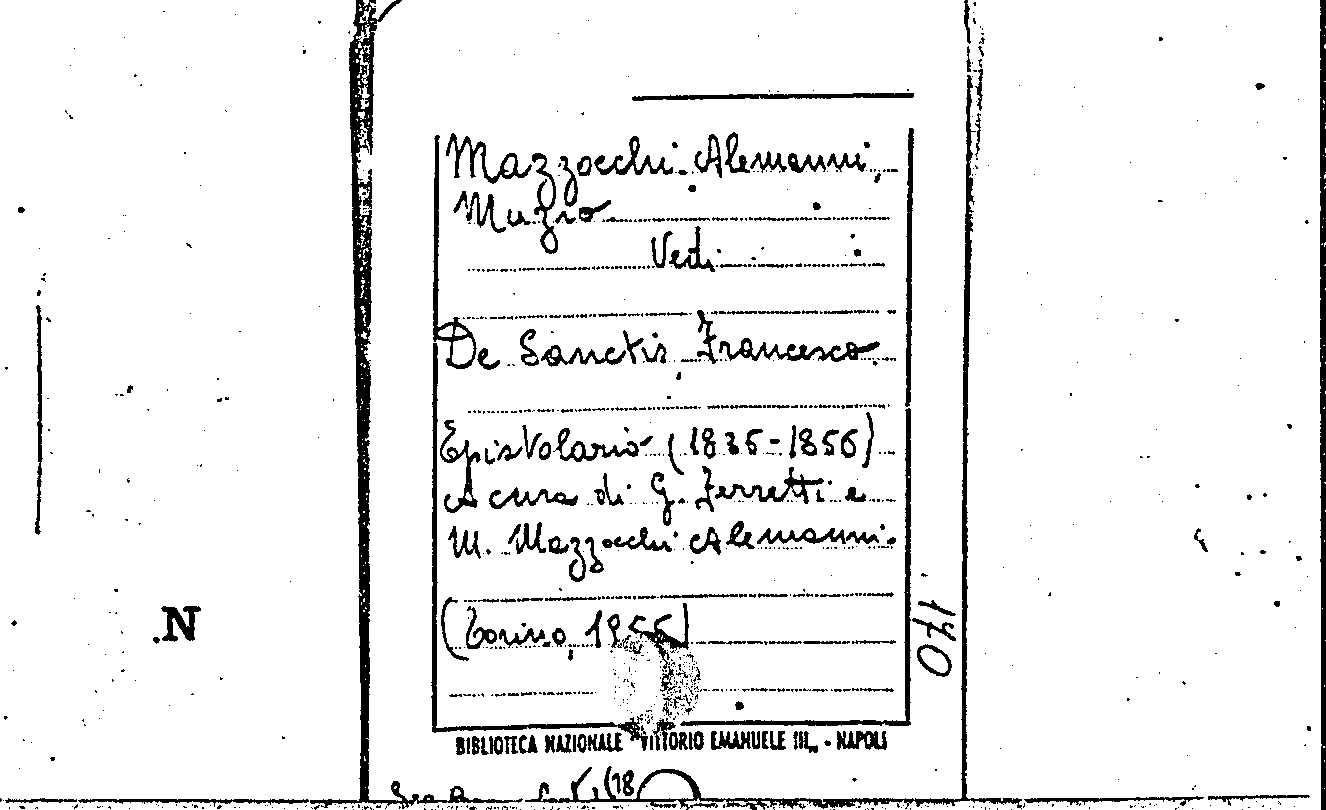 Mazzocchi Alemanni,
Muzio
Vedi
De Sanctis, Francesco
Epistolario (1836-1856)
A cura di G. Ferretti e
M. Mazzocchi Alemanni.
(Torino, 1956)
170
.N
BIBLIOTECA NAZIONALE "VITTORIO EMANUELE III„ - NAPOLI